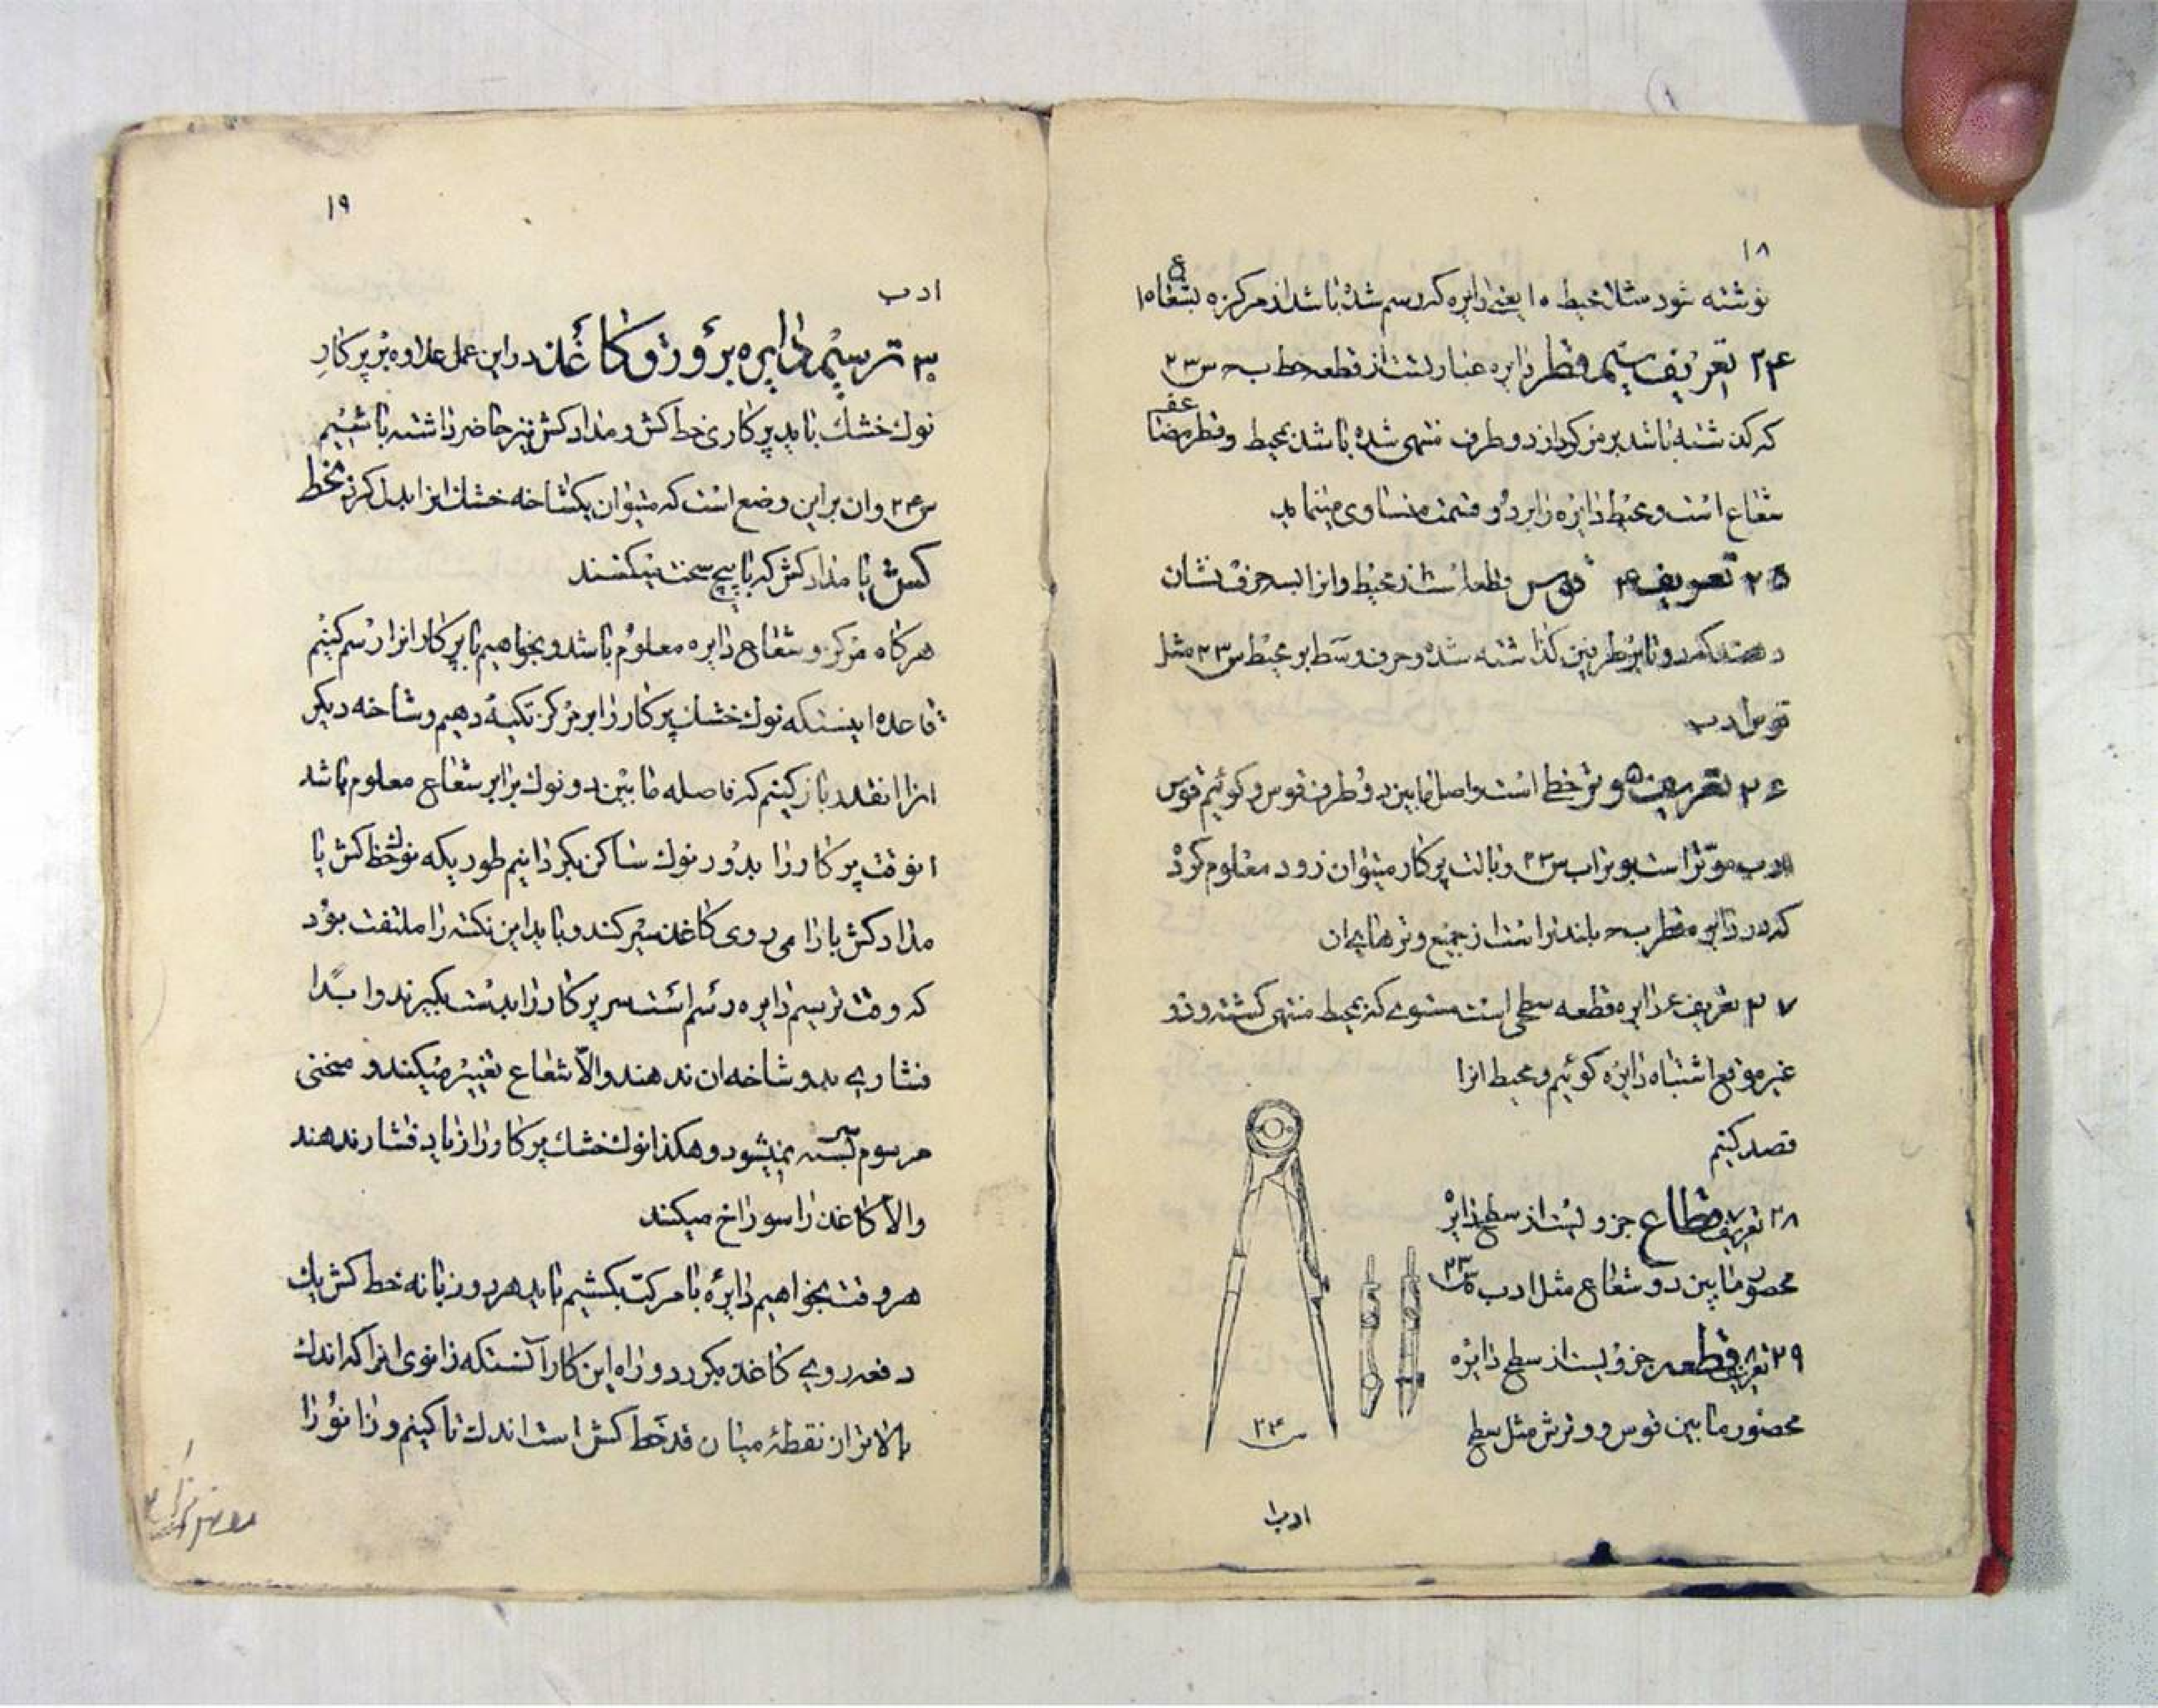 ۱۸
نوشته شود مثلا محیط ۱۵ یعنی دایره که رسم شده باشد از مرکز ۵ بشعاع ۱۵
۲۴ تعریف سیم قطر دایره عبارتست از قطعه خط ب ح س ۲۳
که گذشته باشد بر مرکز و از دو طرف منتهی شده باشد بمحیط و قطر مضاعف
شعاع است و محیط دایره را بر دو قسمت متساوی مینماید
۲۵ تعریف ۴ قوس قطعه است از محیط و انرا بسه حرف نشان
دهند که دو تا بر طرفین گذاشته شده و حرف وسط بر محیط س ۲۳ مثل
قوس ا د ب
۲۶ تعریف ۵ وتر خطی است واصل مابین دو طرف قوس و کوئیم قوس
ا د ب موتر است بوتر ا ب س ۲۳ و بالت پرکار میتوان زود معلوم کرد
که در دایره قطر ب ح بلندتر است از جمیع وترهای ان
۲۷ تعریف ۶ دایره قطعه سطحی است مستوی که بمحیط منتهی کشته و در
غیر موقع اشتباه دایره کوئیم و محیط انرا
قصد کنیم
۲۸ تعریف ۷ قطاع جزویست از سطح دایره
محصور مابین دو شعاع مثل ا د ب ۵ س ۲۳
۲۹ تعریف ۸ قطعه جزویست از سطح دایره
محصور مابین قوس و وترش مثل سطح
س ۲۴
ا د ب ا
۱۹
ا د ب
۳۰ ترسیم دایره بر روی کاغذ در این عمل علاوه بر پرکار
نوک خشک باید پرکاری خط کش و مداد کش نیز حاضر داشته باشیم
س ۲۴ و ان بر این وضع است که میتوان یکشاخه خشک انرا بدل کرد بخط
کش یا مداد کش که با پیچ سخت میکنند
هرکاه مرکز و شعاع دایره معلوم باشد و بخواهیم با پرکار انرا رسم کنیم
قاعده اینستکه نوک خشک پرکار را بر مرکز تکیه دهیم و شاخه دیکر
انرا انقدر باز کنیم که فاصله مابین دو نوک برابر شعاع معلوم باشد
انوقت پرکار را بدور نوک ساکن بکردانیم طوریکه نوک خط کش یا
مداد کش بارامی روی کاغذ سیر کند و باید این نکته را ملتفت بود
که وقت ترسیم دایره رسم است سر پرکار را بدست بکیرند و ابدا
فشاری بدو شاخه ان ندهند والا شعاع تغییر میکند و منحنی
مرسوم بسته نمیشود و هکذا نوک خشک پرکار را زیاد فشار ندهند
والا کاغذ را سوراخ میکند
هر وقت بخواهیم دایرهٔ با مرکب بکشیم باید هر دو زبانه خط کش یک
دفعه روی کاغذ بکردد و راه این کار آنستکه زانوی انرا که اندک
بالاتر از نقطهٔ میان قد خط کش است اندک تا کنیم و زانو را